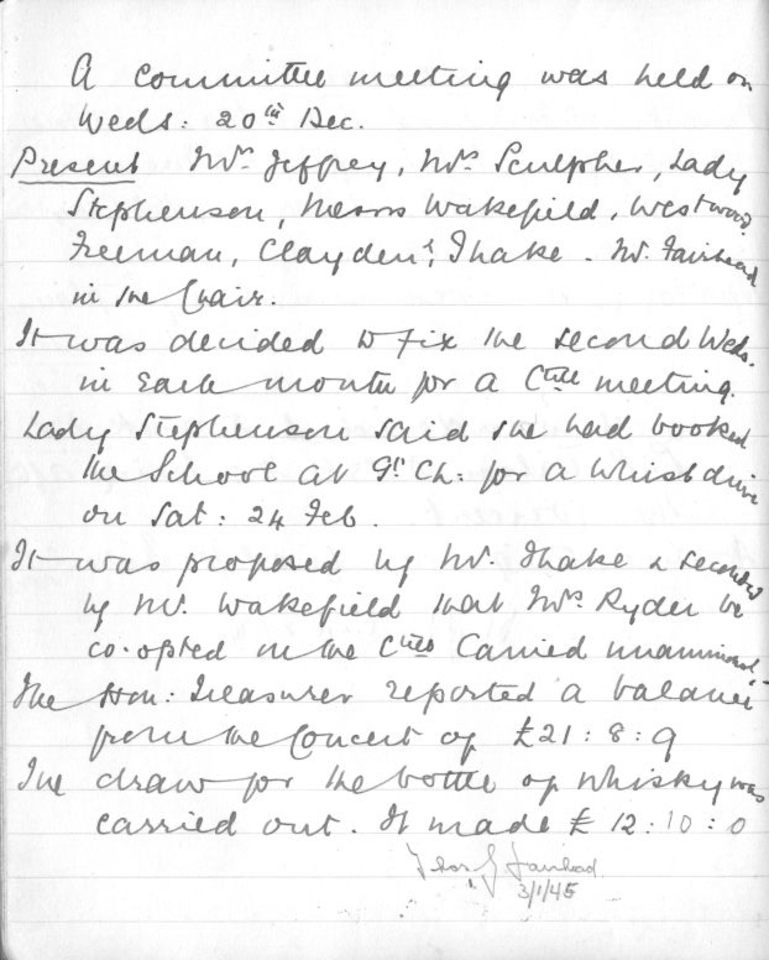 A committee meeting was held on
Weds: 20th Dec.
Present Mrs Jeffrey, Mrs Sculpher, Lady
Stephenson, Messrs Wakefield, Westwood
Freeman, Clayden & Thake. Mr. Fairhead
in the Chair.
It was decided to fix the second Weds.
in each month for a Cttee meeting.
Lady Stephenson said she had booked
the School at Gt Ch: for a Whist drive
on Sat: 24 Feb.
It was proposed by Mr. Thake & seconded
by Mr. Wakefield that Mrs Ryder be
co-opted on the Cttee Carried unanimously
The Hon: Treasurer reported a balance
from the Concert of £21:8:9
The draw for the bottle of whisky was
carried out. It made £12:10:0
Fairhead
3/1/45